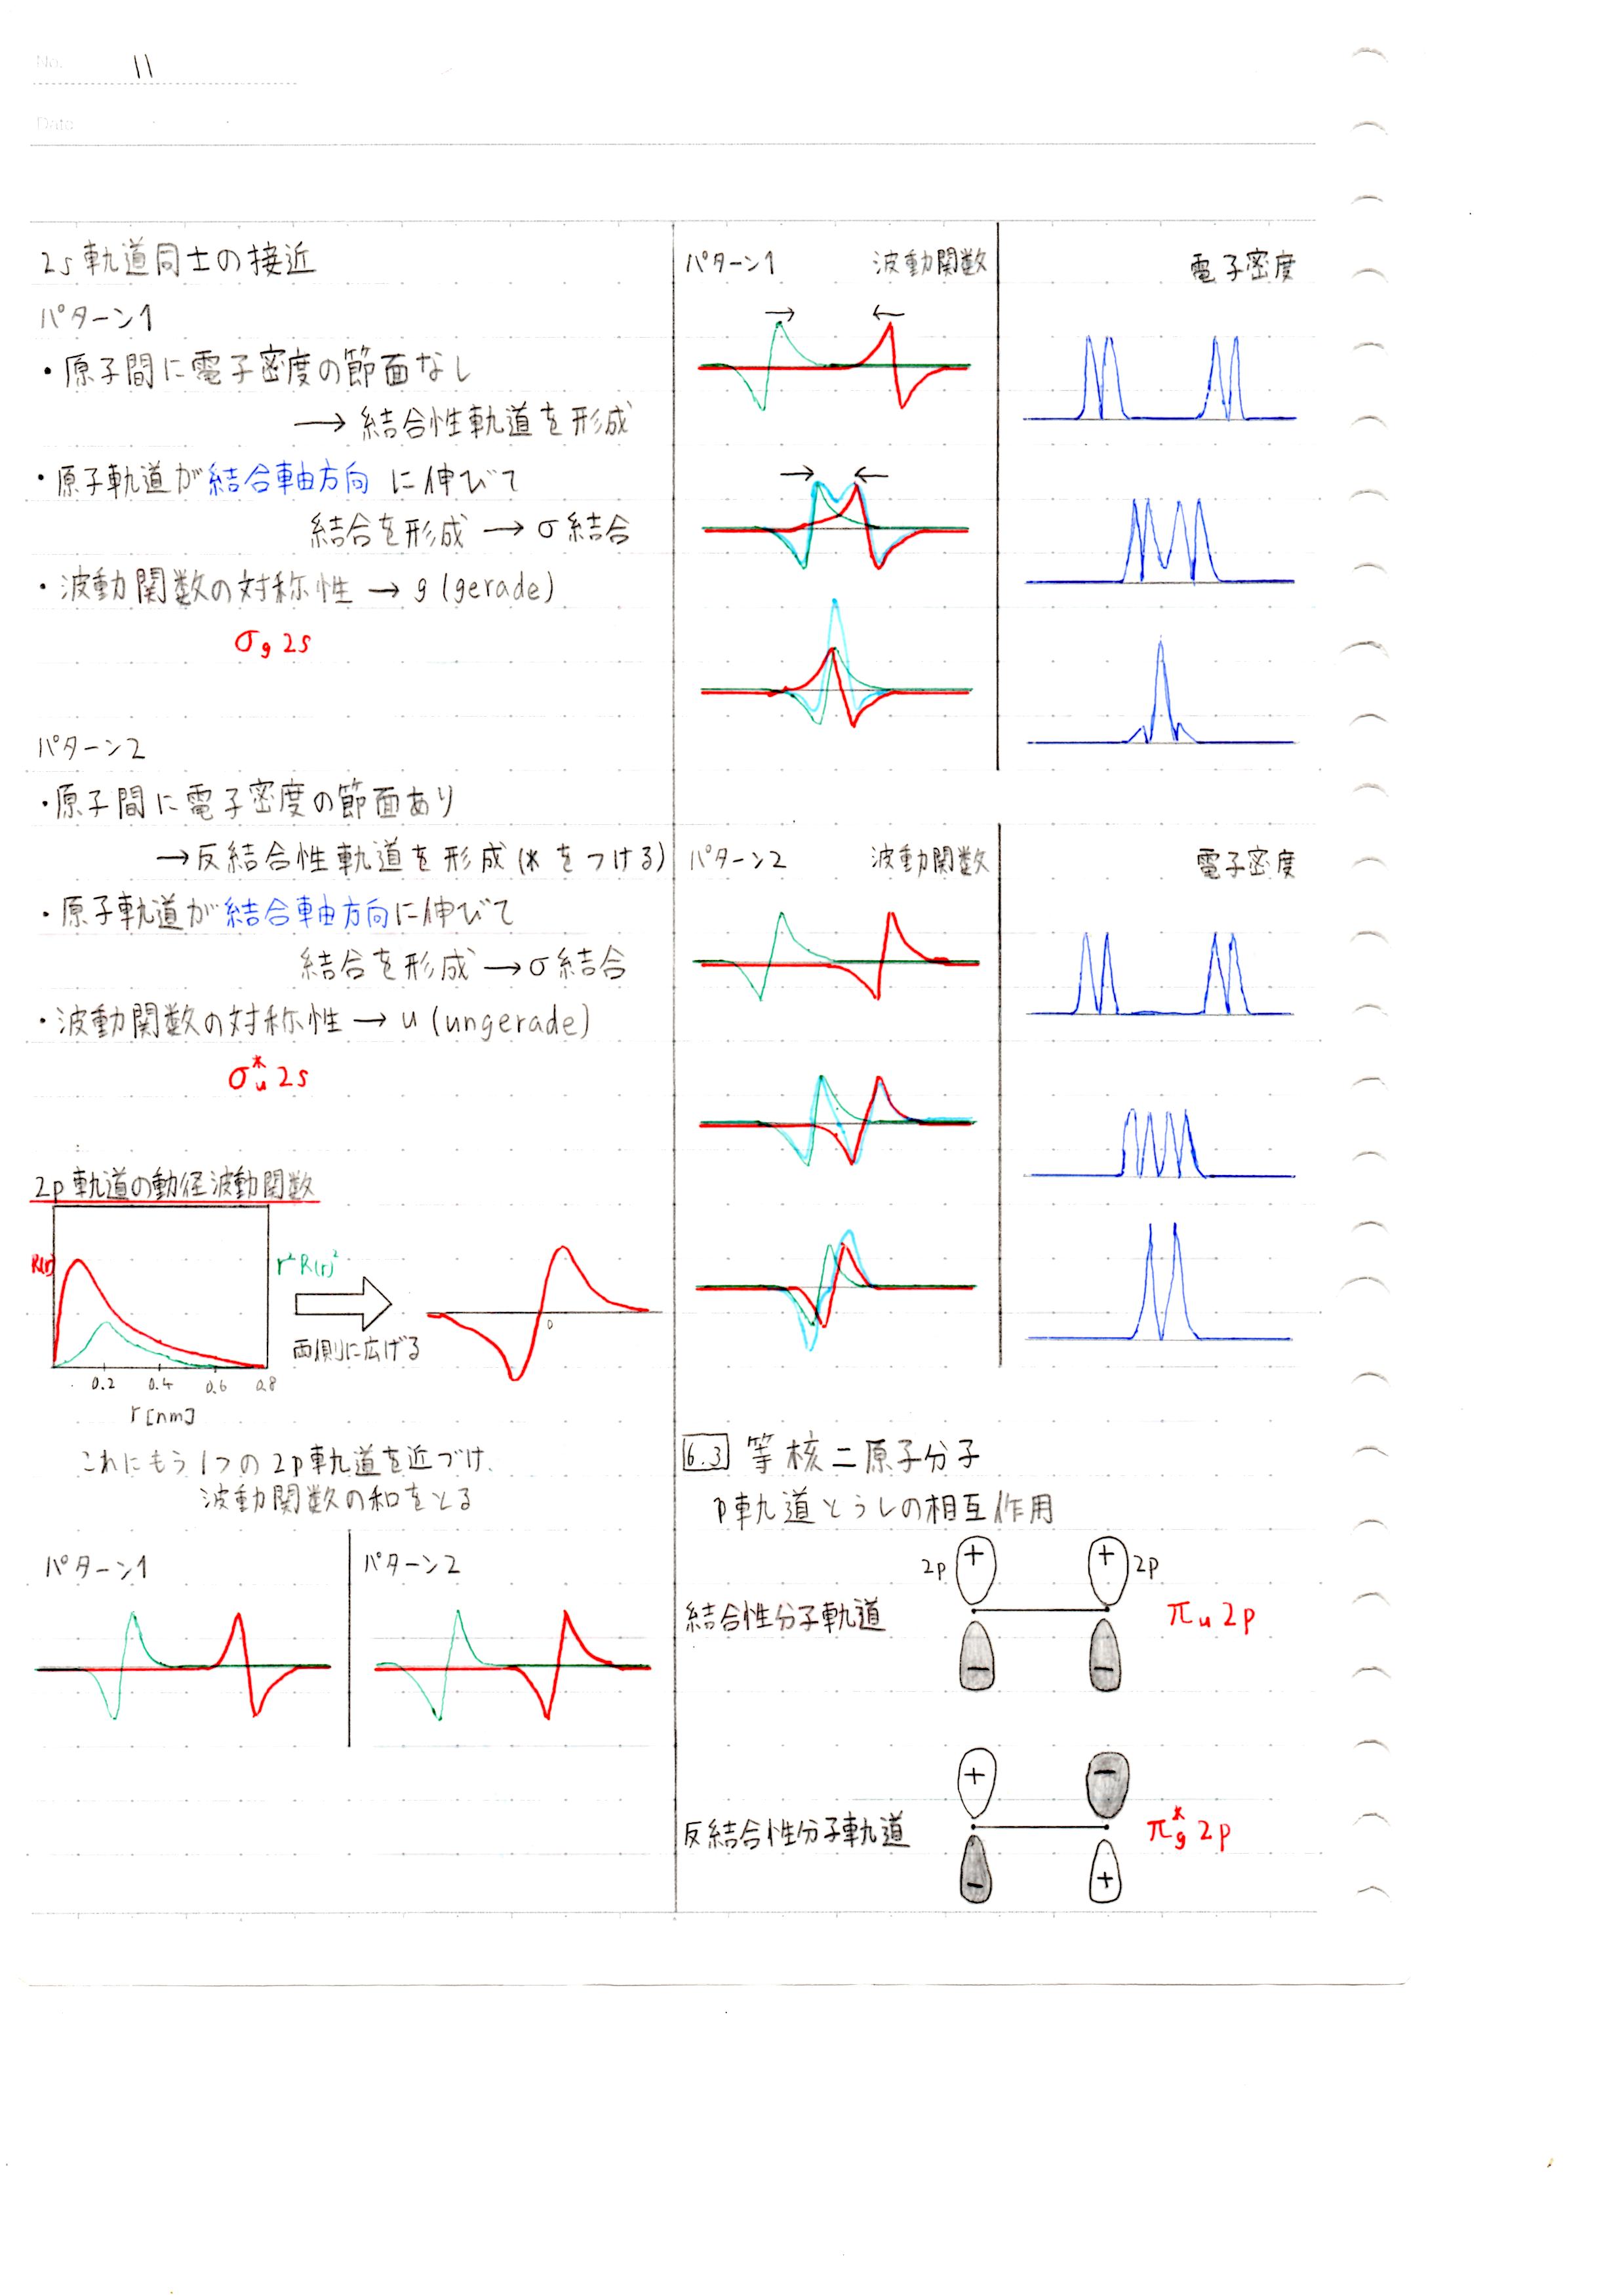 No. 11
Date
2s 軌道同士の接近
パターン1
・原子間に電子密度の節面なし
→ 結合性軌道を形成
・原子軌道が結合軸方向に伸びて
結合を形成 → σ結合
・波動関数の対称性 → g (gerade)
σg 2s
パターン2
・原子間に電子密度の節面あり
→反結合性軌道を形成(*をつける)
・原子軌道が結合軸方向に伸びて
結合を形成 → σ結合
・波動関数の対称性 → u (ungerade)
σ*u 2s
2p 軌道の動径波動関数
R(r)
r²R(r)²
0.2 0.4 0.6 0.8
r [nm]
両側に広げる
0
これにもう1つの2p軌道を近づけ、
波動関数の和をとる
パターン1
パターン2
パターン1 波動関数 電子密度
→ ←
→ ←
パターン2 波動関数 電子密度
6.3 等核二原子分子
p軌道とうしの相互作用
2p + + 2p
結合性分子軌道 πu 2p
− −
+ −
反結合性分子軌道 π*g 2p
− +